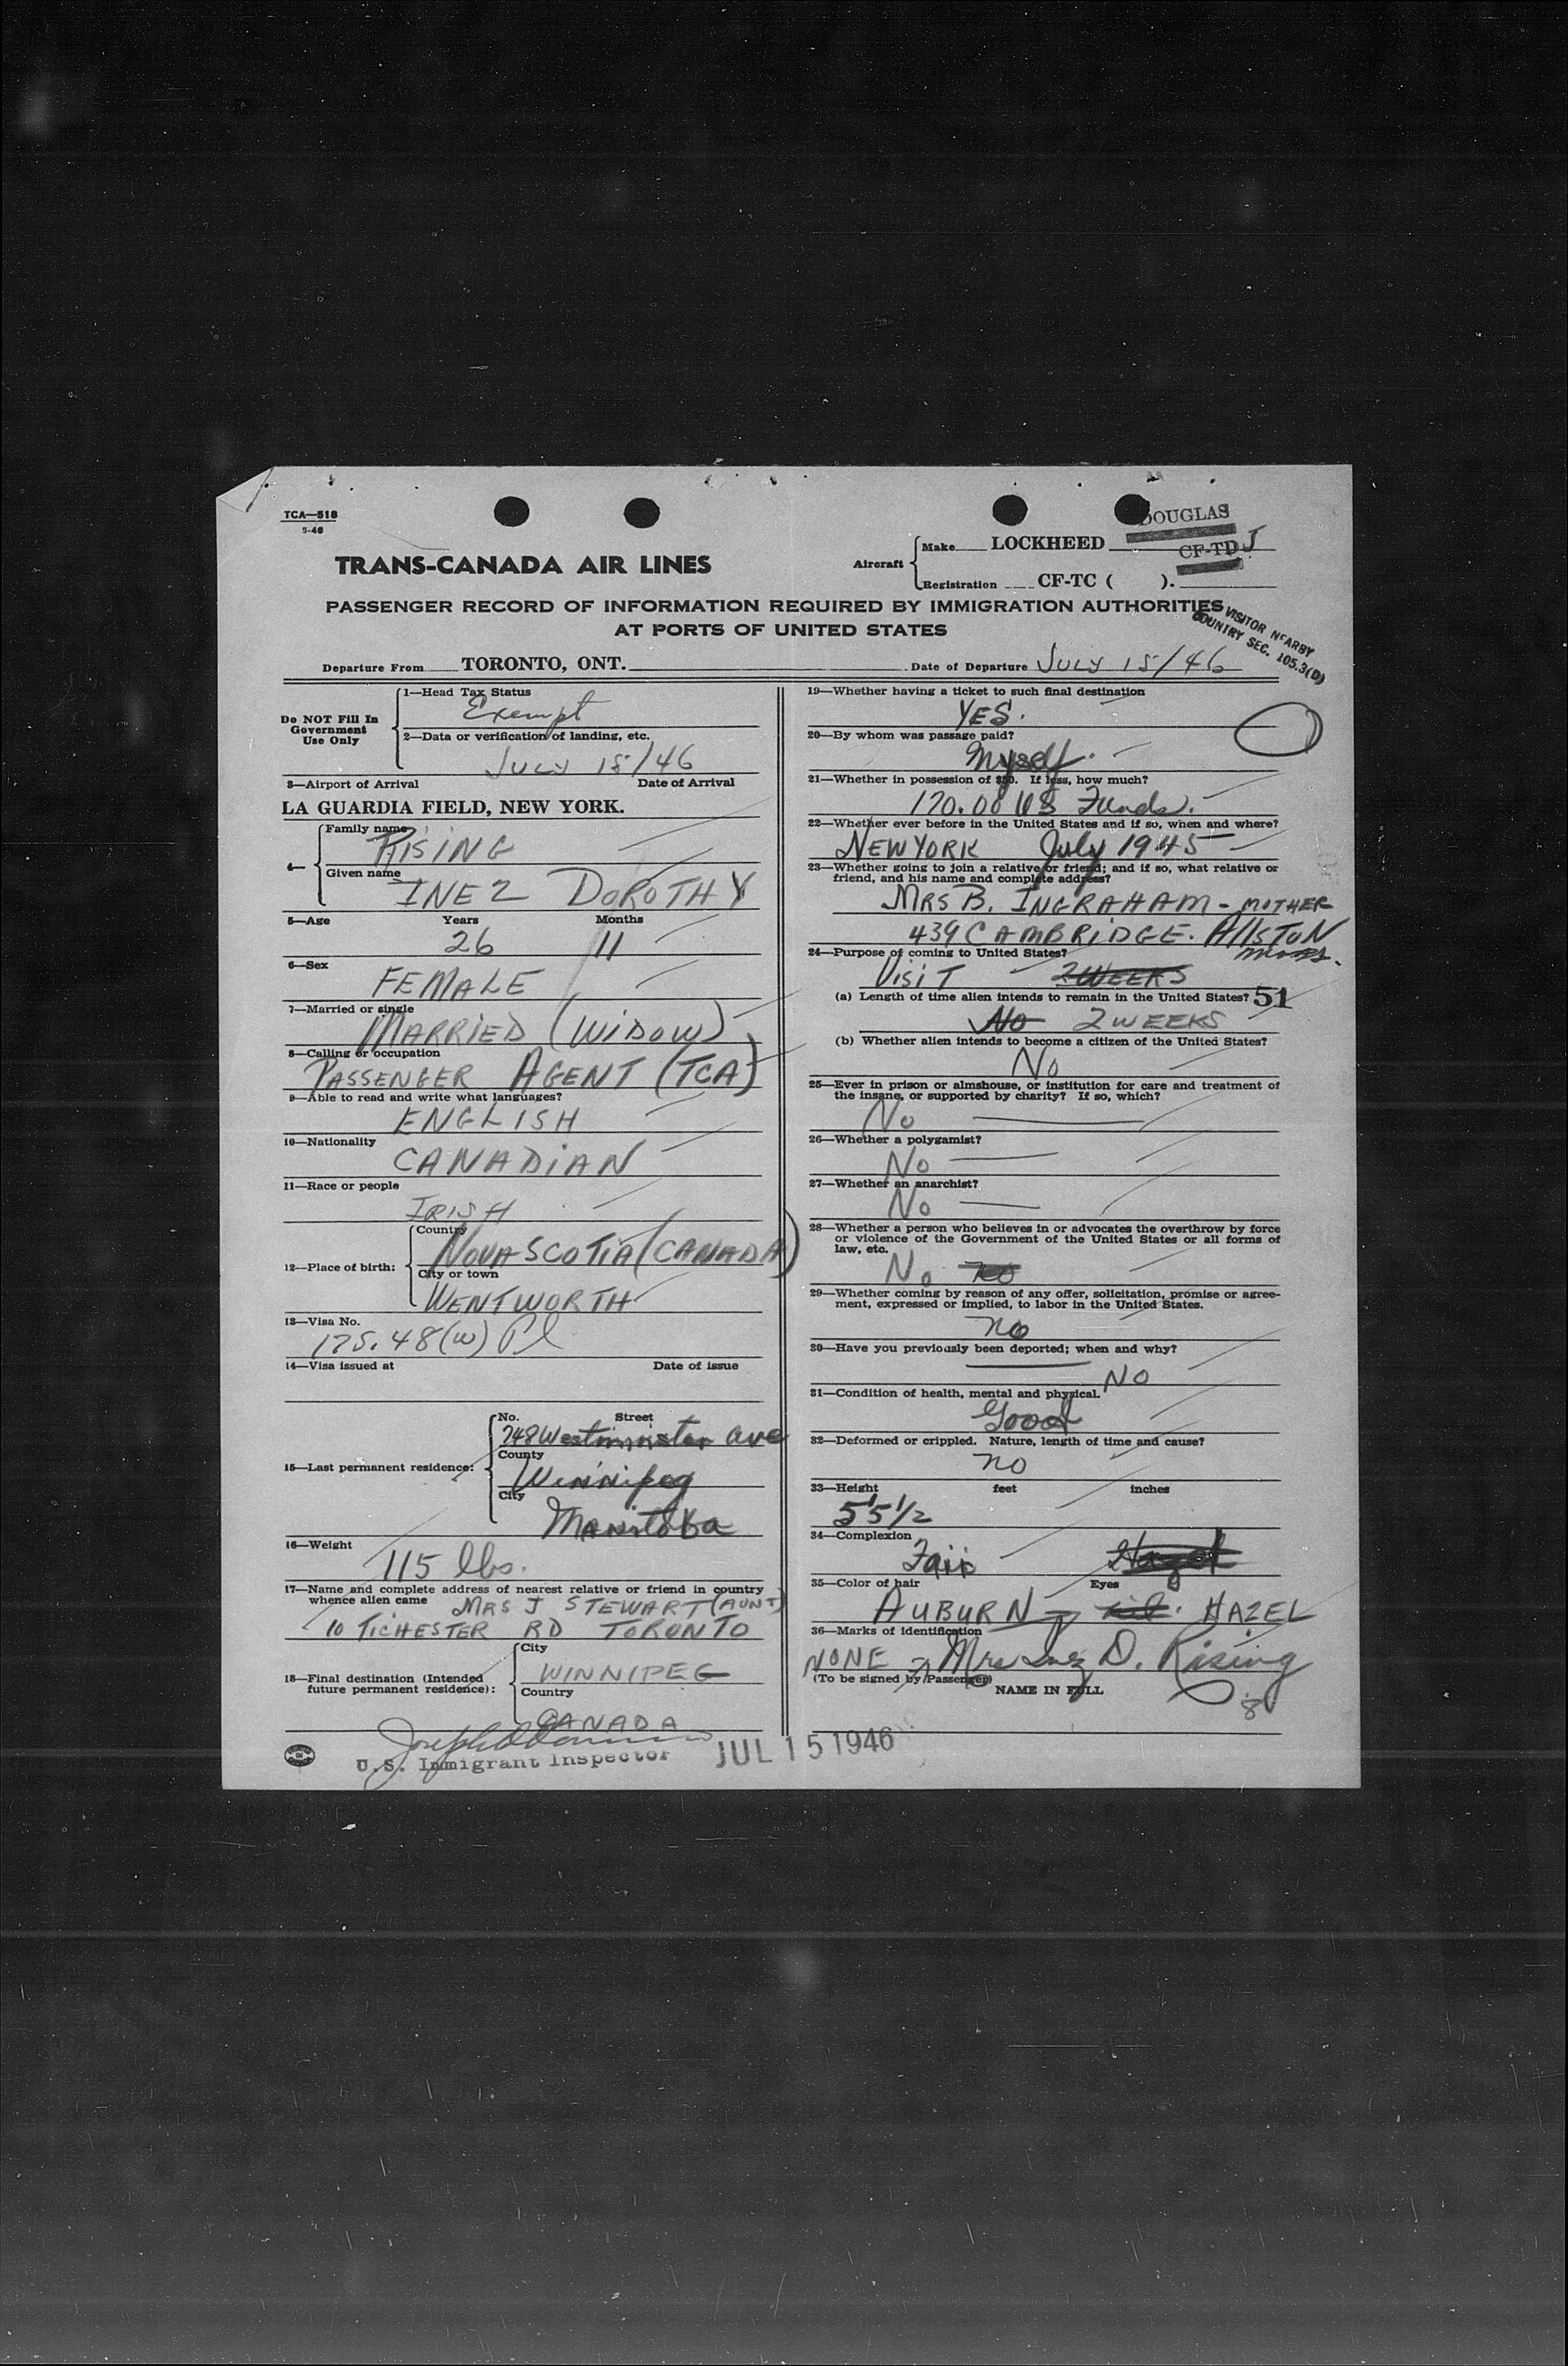 TCA—518
5-46
DOUGLAS
Aircraft
Make LOCKHEED
CF-TDJ
TRANS-CANADA AIR LINES
Registration CF-TC ( ).
PASSENGER RECORD OF INFORMATION REQUIRED BY IMMIGRATION AUTHORITIES
AT PORTS OF UNITED STATES
VISITOR NEARBY
COUNTRY SEC. 105.3(D)
Departure From TORONTO, ONT. Date of Departure JULY 15/46
Do NOT Fill In
Government
Use Only
1—Head Tax Status
Exempt
2—Data or verification of landing, etc.
JULY 15/46
3—Airport of Arrival Date of Arrival
LA GUARDIA FIELD, NEW YORK.
4—
Family name
RISING
Given name
INEZ DOROTHY
5—Age Years Months
26 11
6—Sex
FEMALE
7—Married or single
MARRIED (WIDOW)
8—Calling or occupation
PASSENGER AGENT (TCA)
9—Able to read and write what languages?
ENGLISH
10—Nationality
CANADIAN
11—Race or people
IRISH
12—Place of birth:
Country
NOVA SCOTIA (CANADA)
City or town
WENTWORTH
13—Visa No.
175.48(w)
14—Visa issued at Date of issue
15—Last permanent residence:
No. Street
748 Westminster Ave
County
Winnipeg
City
Manitoba
16—Weight
115 lbs.
17—Name and complete address of nearest relative or friend in country
whence alien came MRS J STEWART (AUNT)
10 TICHESTER RD TORONTO
18—Final destination (Intended
future permanent residence):
City
WINNIPEG
Country
CANADA
U.S. Immigrant Inspector
JUL 15 1946
19—Whether having a ticket to such final destination
YES.
20—By whom was passage paid?
Myself.
21—Whether in possession of $50. If less, how much?
170.00 US Funds.
22—Whether ever before in the United States and if so, when and where?
NEW YORK July 1945
23—Whether going to join a relative or friend; and if so, what relative or
friend, and his name and complete address?
MRS B. INGRAHAM - MOTHER
439 CAMBRIDGE. AllSTON
Mass.
24—Purpose of coming to United States?
VISIT 2 WEEKS
(a) Length of time alien intends to remain in the United States? 51
No 2 WEEKS
(b) Whether alien intends to become a citizen of the United States?
No
25—Ever in prison or almshouse, or institution for care and treatment of
the insane, or supported by charity? If so, which?
No
26—Whether a polygamist?
No
27—Whether an anarchist?
No
28—Whether a person who believes in or advocates the overthrow by force
or violence of the Government of the United States or all forms of
law, etc.
No no
29—Whether coming by reason of any offer, solicitation, promise or agree-
ment, expressed or implied, to labor in the United States.
no
30—Have you previously been deported; when and why?
NO
31—Condition of health, mental and physical.
Good
32—Deformed or crippled. Nature, length of time and cause?
no
33—Height feet inches
5'5 1/2
34—Complexion
Fair Hazel
35—Color of hair Eyes
AUBURN HAZEL
36—Marks of identification
NONE Mrs Inez D. Rising
(To be signed by Passenger)
NAME IN FULL
8